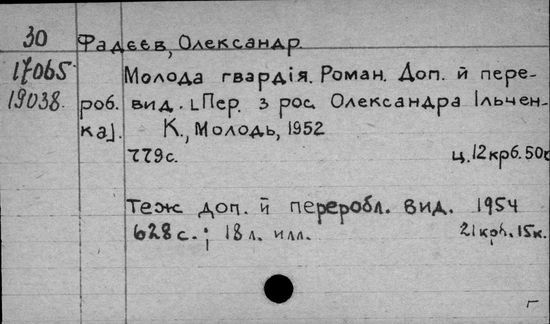 30 Фадєєв, Олександр.
17065 Молода гвардія. Роман. Доп. й пере-
19038. роб. вид. [Пер. з рос. Олександра Ільчен-
ка]. К., Молодь, 1952
779с. ц. 12крб. 50к
Теж доп. й переробл. вид. 1954
628 с.; 18 л. илл. 21крб. 15к.
г